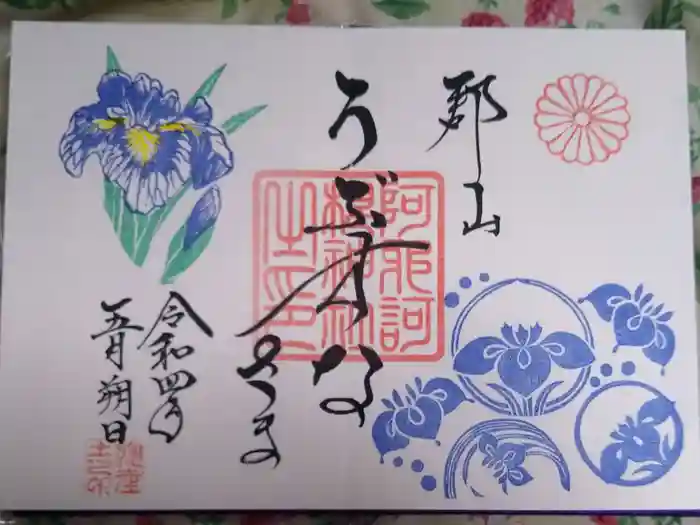 郡山
うぶすな
さま
令和四年
五月朔日
阿邪訶
根神社
之印